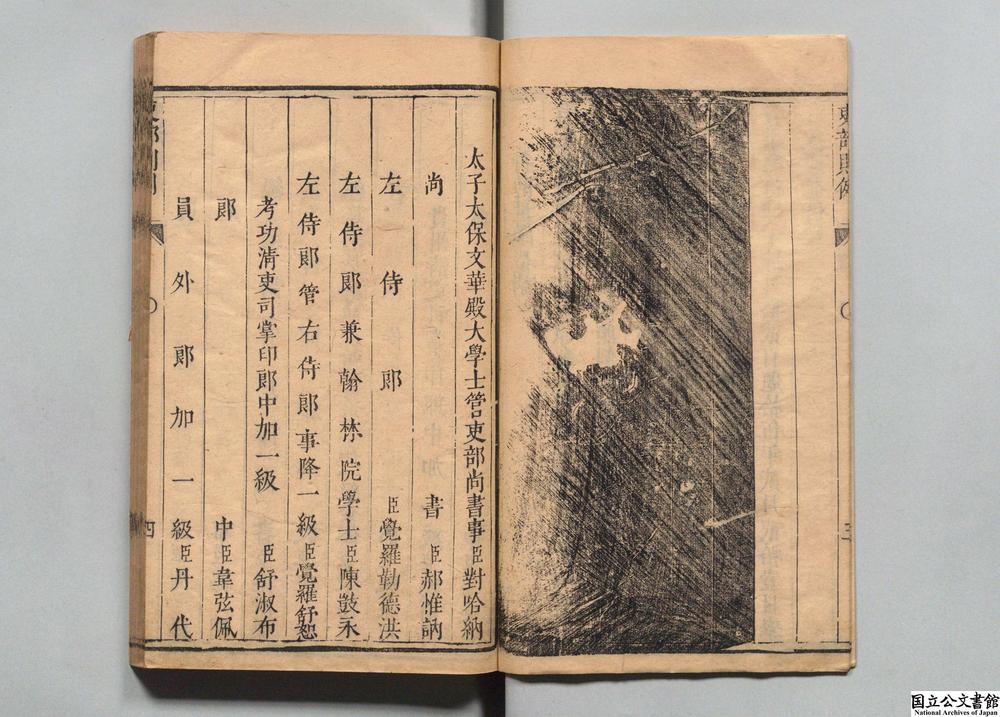 吏部則例
三
太子太保文華殿大學士管吏部尚書事臣對哈納
尚書臣郝惟訥
左侍郎臣覺羅勒德洪
左侍郎兼翰林院學士臣陳敱永
左侍郎管右侍郎事降一級臣覺羅舒恕
考功清吏司掌印郎中加一級臣舒淑布
郎中臣韋弦佩
員外郎加一級臣丹代
吏部則例
四
国立公文書館
National Archives of Japan